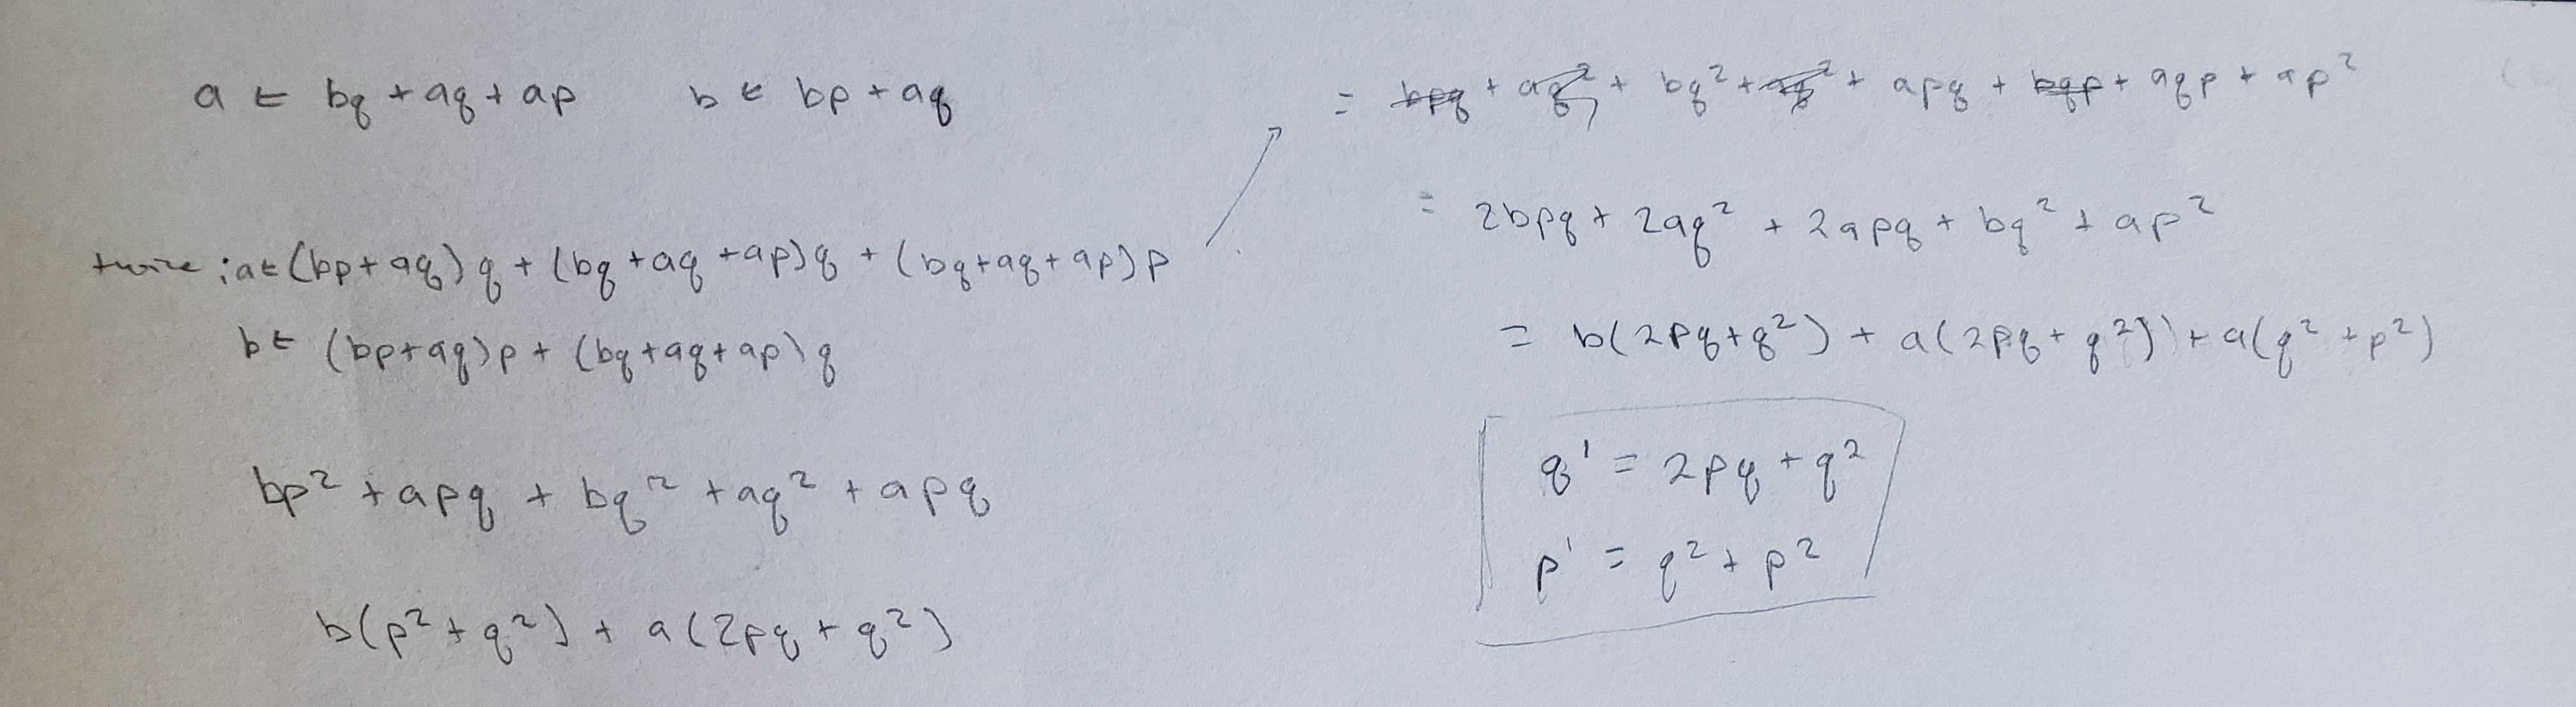 a ← bq + aq + ap b ← bp + aq
twice : a ← (bp + aq)q + (bq + aq + ap)q + (bq + aq + ap)p
b ← (bp + aq)p + (bq + aq + ap)q
bp² + apq + bq² + aq² + apq
b(p² + q²) + a(2pq + q²)
= bpq + aq² + bq² + aq² + apq + bqp + aqp + ap²
= 2bpq + 2aq² + 2apq + bq² + ap²
= b(2pq + q²) + a(2pq + q²) + a(q² + p²)
q' = 2pq + q²
p' = q² + p²